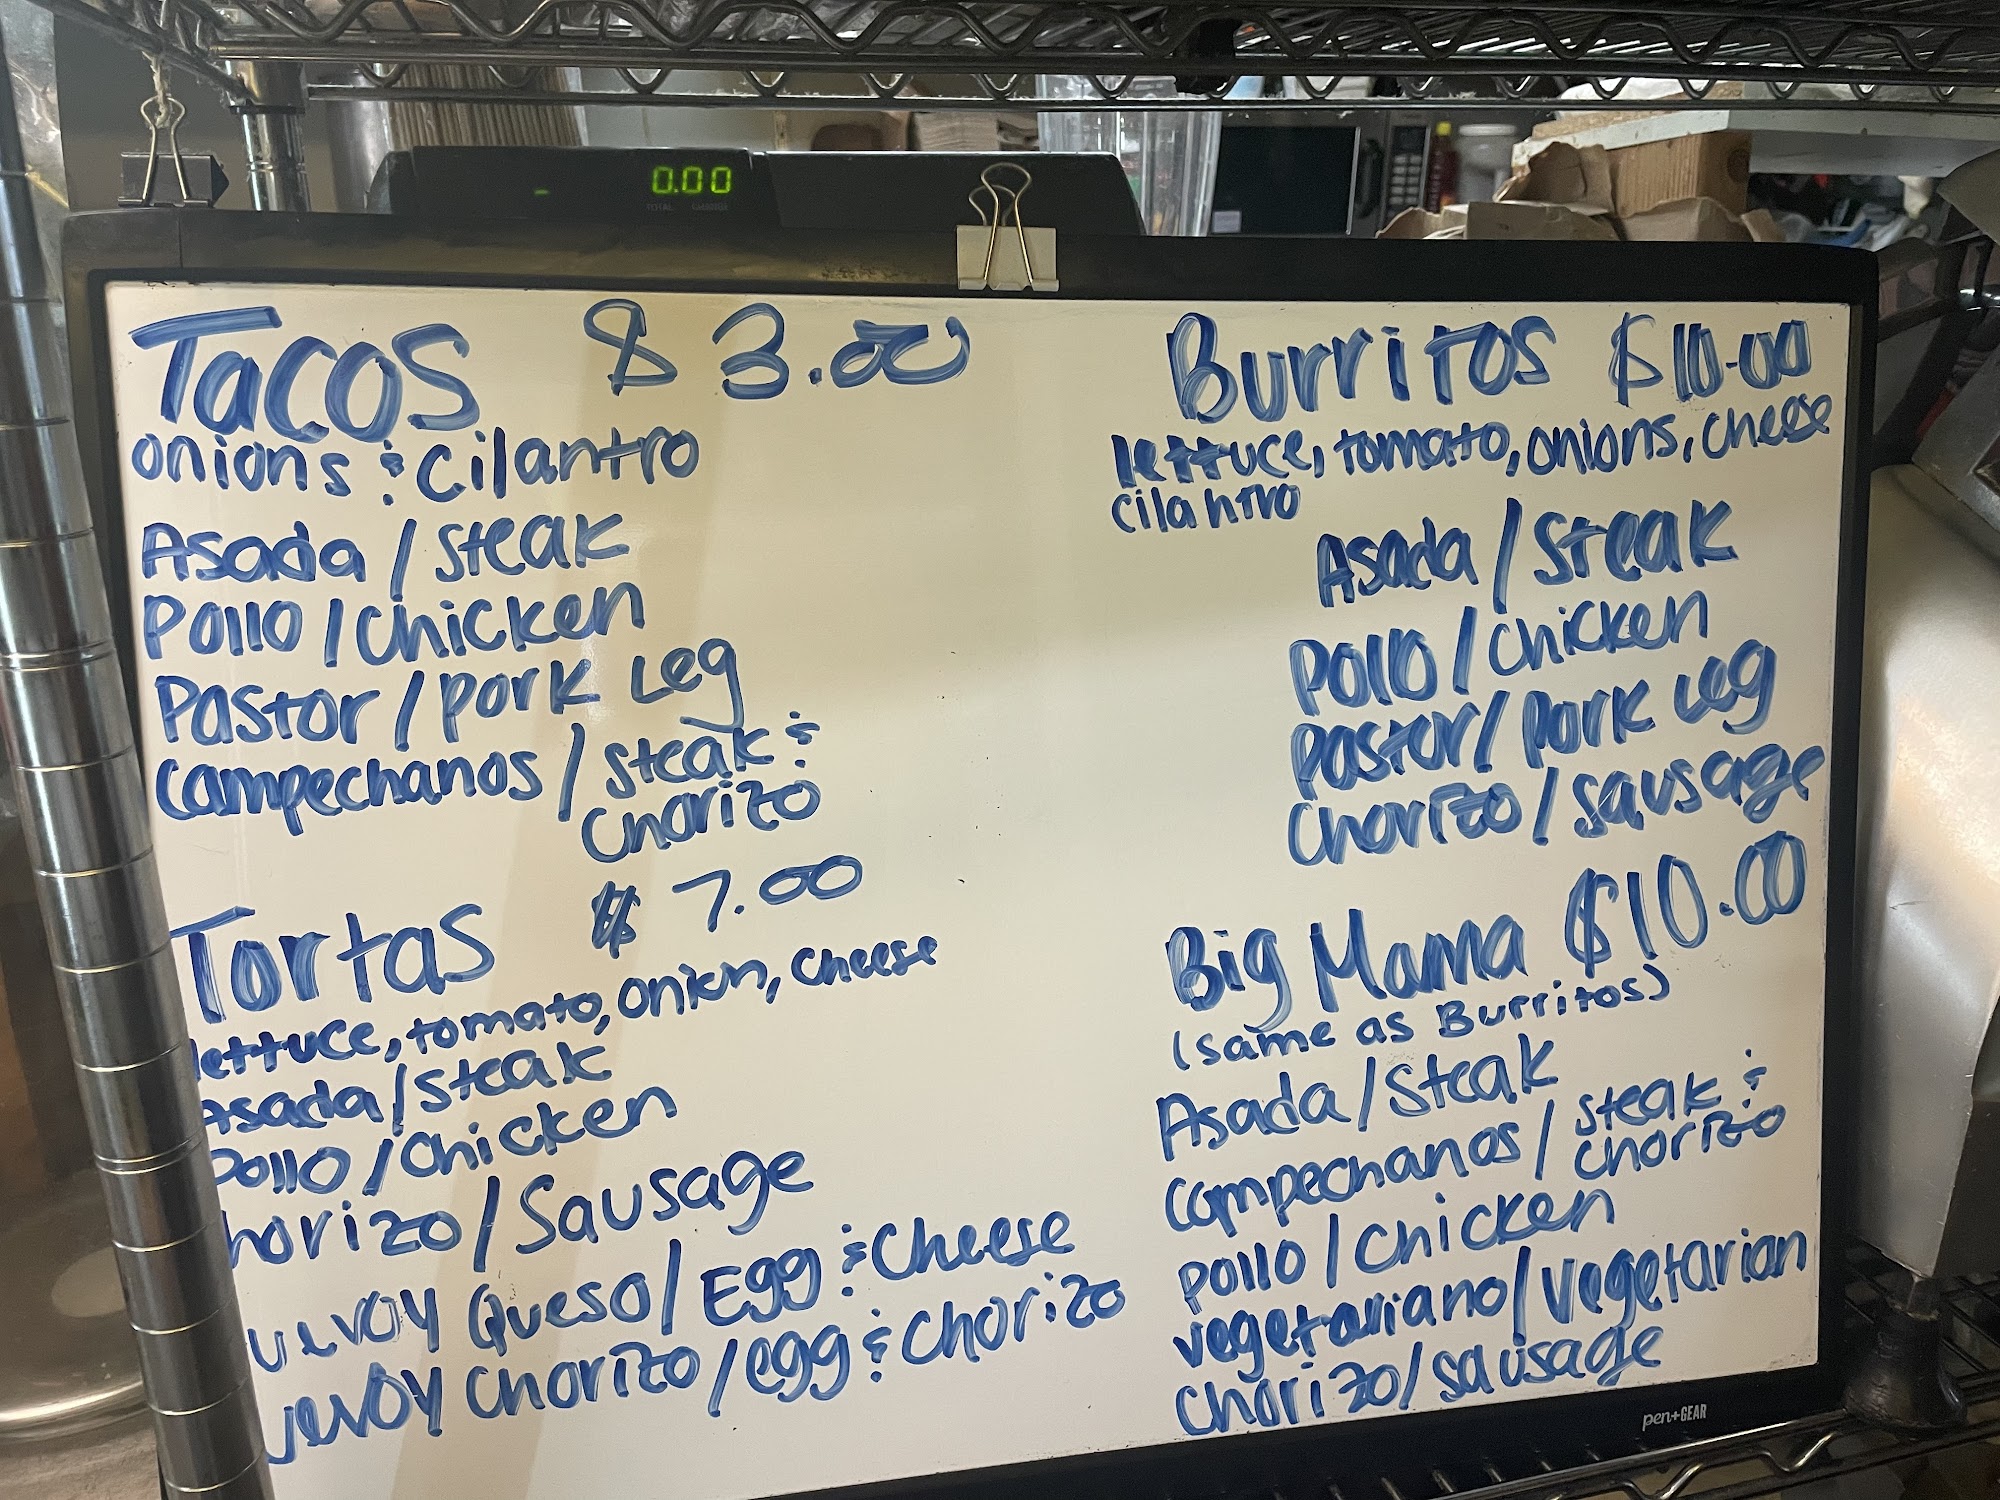 0.00
TOTAL CHANGE
Tacos $ 3.00
onions & cilantro
Asada / steak
Pollo / chicken
Pastor / pork Leg
Campechanos / steak &
chorizo
Tortas $ 7.00
lettuce, tomato, onion, cheese
Asada / steak
Pollo / Chicken
horizo / Sausage
uevoy Queso / Egg & Cheese
uevoy Chorizo / egg & chorizo
Burritos $10.00
lettuce, tomato, onions, cheese
cilantro
Asada / steak
Pollo / chicken
Pastor / pork Leg
Chorizo / sausage
Big Mama $10.00
(same as Burritos)
Asada / Steak
Campechanos / steak &
chorizo
pollo / chicken
vegetariano / vegetarian
Chorizo / sausage
pen+GEAR